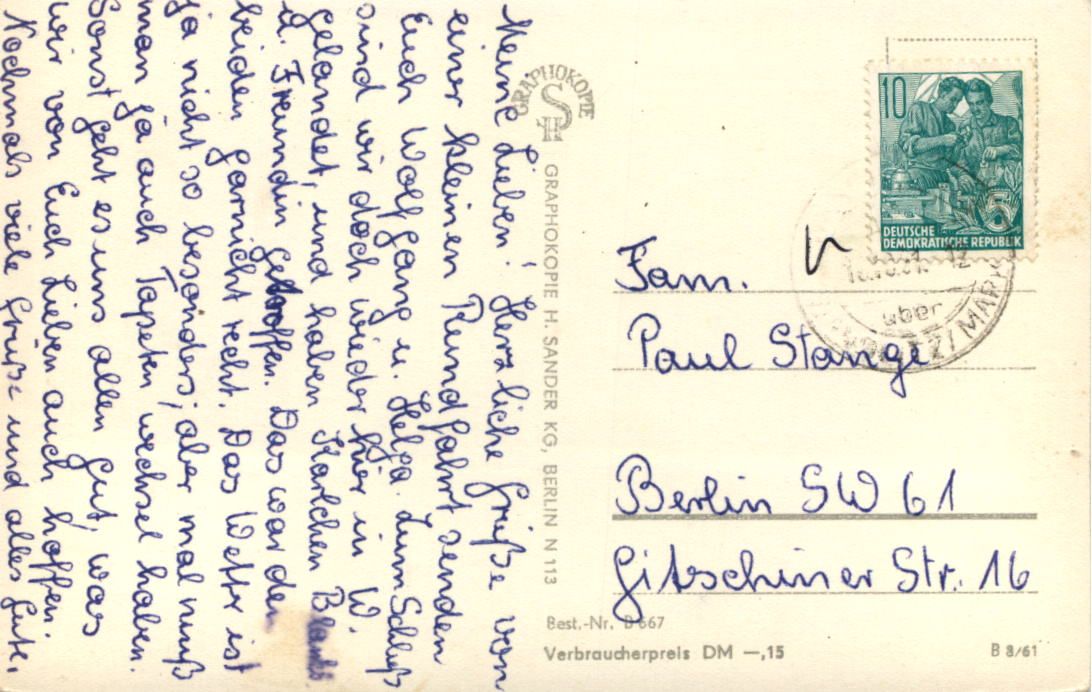 Meine Lieben! Herzliche Grüße von
einer kleinen Rundfahrt senden
Euch Wolfgang u. Helga. Zum Schluß
sind wir doch wieder hier in W.
gelandet, und haben Karlchen
u. Freundin getroffen. Das war den
beiden garnicht recht. Das Wettr ist
ja nicht so besonders; aber mal muß
man ja auch Tapeten wechsel haben.
Sonst geht es uns allen gut, was
wir von Euch Lieben auch hoffen.
Nochmals viele Grüße und alles Gute.
GRAPHOKOPIE
SH
GRAPHOKOPIE H. SANDER KG, BERLIN N 113
10
5
DEUTSCHE
DEMOKRATISCHE REPUBLIK
12
über
/MARK
Fam.
Paul Stange
Berlin SW 61
Gitschiner Str. 16
Best.-Nr. B 667
Verbraucherpreis DM —,15
B 8/61